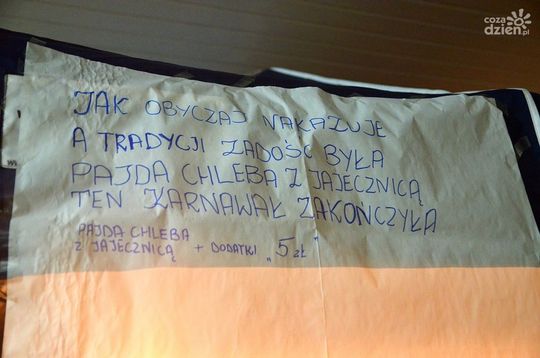 cozadzień.pl
JAK OBYCZAJ NAKAZUJE
A TRADYCJI ZADOŚĆ BYŁA
PAJDA CHLEBA Z JAJECZNICĄ
TEN KARNAWAŁ ZAKOŃCZYŁA
PAJDA CHLEBA
Z JAJECZNICĄ + DODATKI „5 zł"